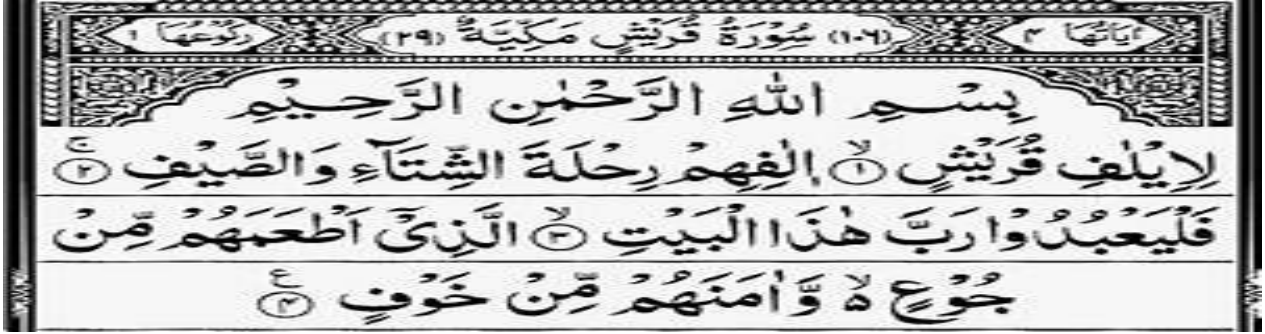 اٰيَاتُهَا ٤ (١٠٦) سُوْرَةُ قُرَيْشٍ مَكِّيَّةٌ (٢٩) رُكُوْعُهَا ١
بِسْمِ اللّٰهِ الرَّحْمٰنِ الرَّحِيْمِ
لِاِيْلٰفِ قُرَيْشٍ ۙ‏﴿۱﴾ اٖلٰفِهِمْ رِحْلَةَ الشِّتَآءِ وَالصَّيْفِ ۚ‏﴿۲﴾
فَلْيَعْبُدُوْا رَبَّ هٰذَا الْبَيْتِ ۙ‏﴿۳﴾ الَّذِىْٓ اَطْعَمَهُمْ مِّنْ
جُوْعٍ ۙ۬ وَّاٰمَنَهُمْ مِّنْ خَوْفٍ ﴿۴﴾ ع